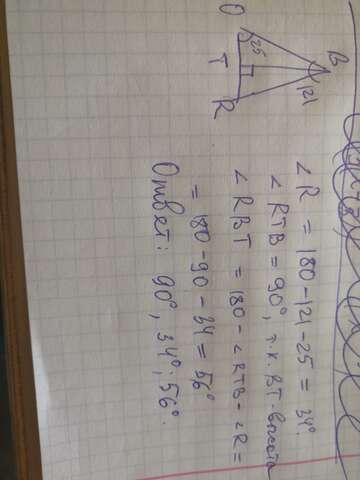 O
25
B
T
121
R
∠ R = 180-121-25 = 34°.
∠ RTB = 90°, т.к. BT-высота
∠ RBT = 180-∠RTB-∠R =
= 180-90-34 = 56°
Ответ: 90°, 34°; 56°.